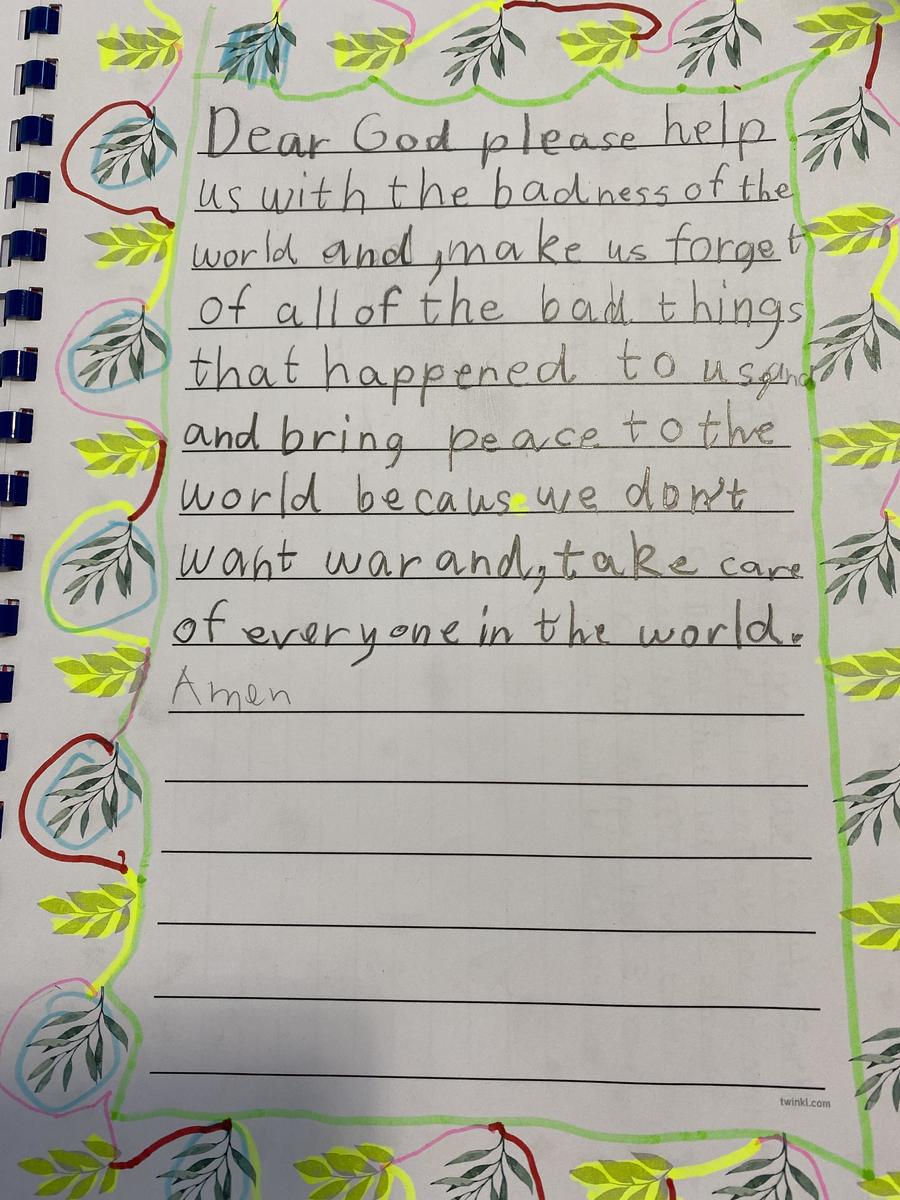 Dear God please help
us with the badness of the
world and ,make us forget
of all of the bad things
that happened to us and
and bring peace to the
world because we don't
want war and, take care
of everyone in the world.
Amen
twinkl.com